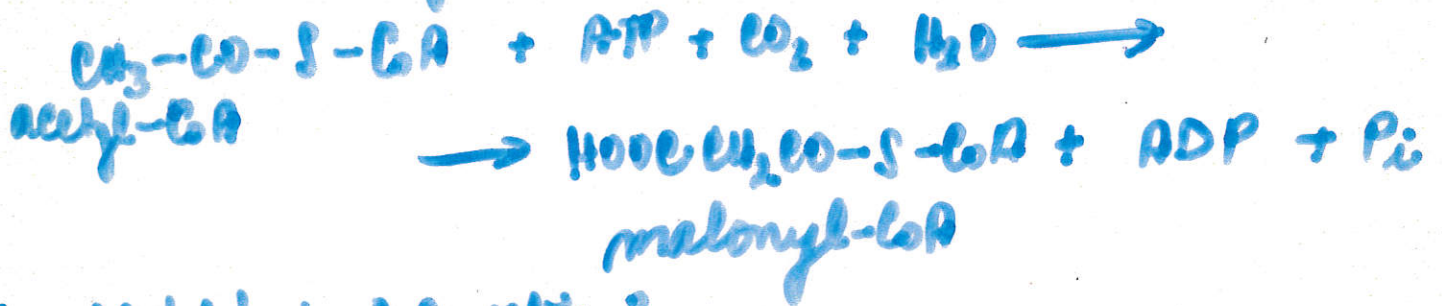 CH₃-CO-S-CoA + ATP + CO₂ + H₂O ⟶
acetyl-CoA
⟶ HOOCCH₂CO-S-CoA + ADP + Pi
malonyl-CoA